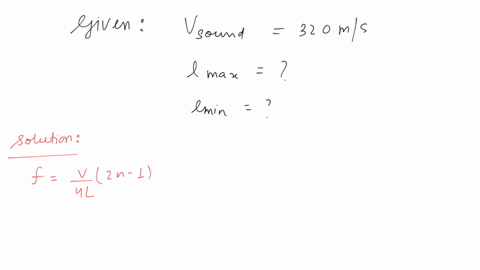 Given: Vsound = 320 m/s
lmax = ?
lmin = ?
Solution:
f = V/4L (2n-1)